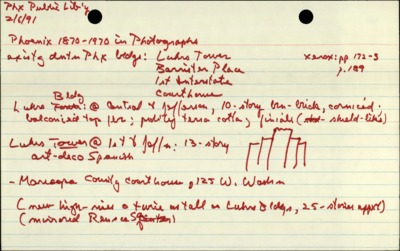 Phx Public Lib'y
2/6/91
Phoenix 1870-1970 in Photographs
existg dntn Phx bldgs: Luhrs Tower
Barrister Place
1st Interstate
Courthouse
xerox: pp 172-3
p. 189
Bldg
Luhrs @ Central & Jefferson, 10-story brn-brick, corniced-
balconied top ; terra cotta; finials ( shield-like)
Luhrs Tower @ 1st & Jeffn: 13-story
art-deco Spanish
- Maricopa County Courthouse, 125 W. Washn
(new high-rises twice as tall as Luhrs Bldgs, 25-stories appx)
(mirrored)